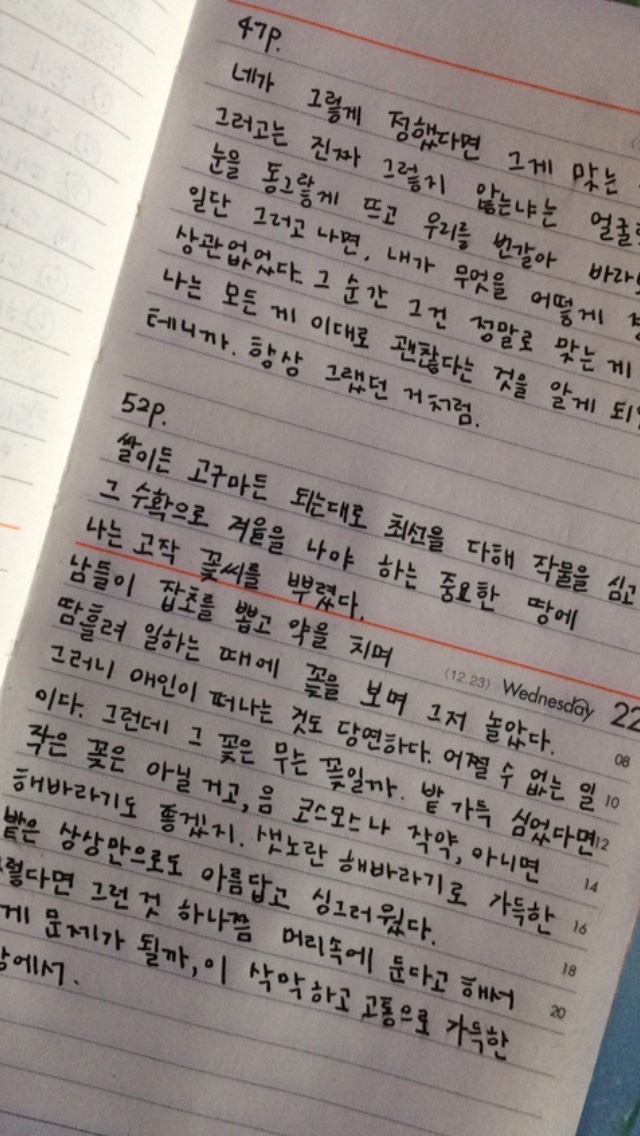 47p.
네가 그렇게 정했다면 그게 맞는
그러고는 진짜 그렇지 않느냐는 얼굴로
눈을 동그랗게 뜨고 우리를 번갈아
일단 그러고 나면, 내가 무엇을 어떻게
상관없었다. 그 순간 그건 정말로 맞는 게
나는 모든 게 이대로 괜찮다는 것을 알게
테니까. 항상 그랬던 거처럼.
52p.
쌀이든 고구마든 되는대로 최선을 다해 작물을 심고
그 수확으로 겨울을 나야 하는 중요한 땅에
나는 고작 꽃씨를 뿌렸다.
남들이 잡초를 뽑고 약을 치며
땀흘려 일하는 때에 꽃을 보며 그저 놀았다.
(12.23) Wednesday 22
그러니 애인이 떠나는 것도 당연하다. 어쩔 수 없는 일
08
이다. 그런데 그 꽃은 무슨 꽃일까. 밭 가득 심었다면
10
작은 꽃은 아닐 거고, 음 코스모스나 작약, 아니면
12
해바라기도 좋겠지. 샛노란 해바라기로 가득한
14
밭은 상상만으로도 아름답고 싱그러웠다.
16
그렇다면 그런 것 하나쯤 머리속에 둔다고 해서
18
게 문제가 될까, 이 삭막하고 고통으로 가득한
20
에서.